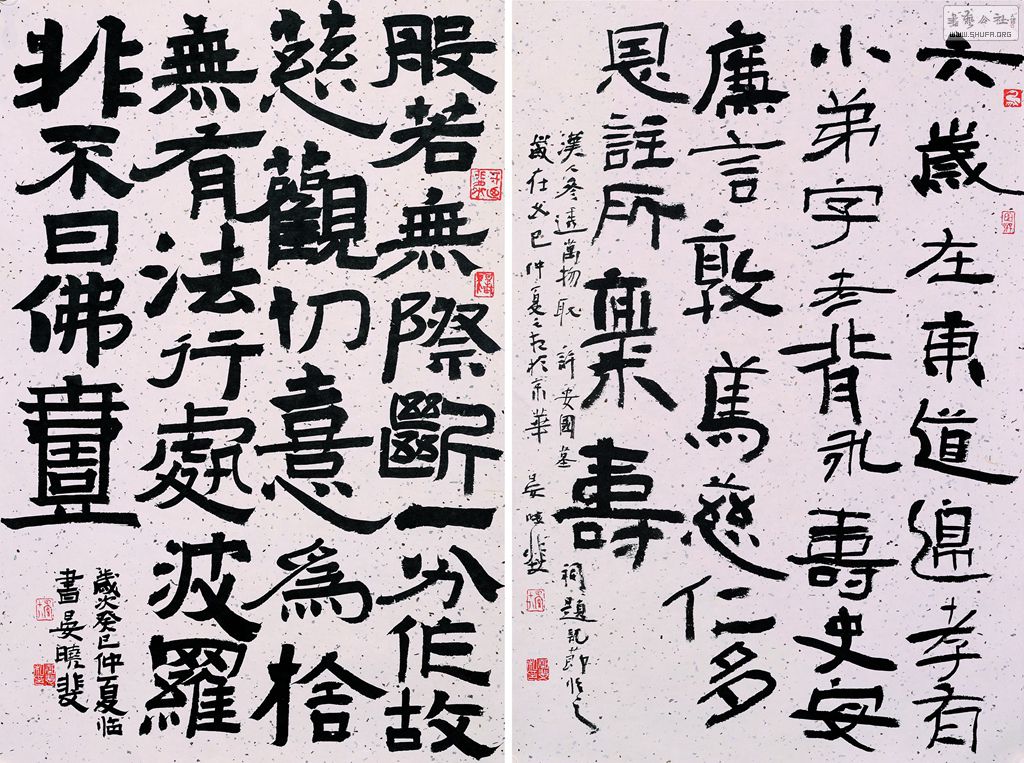 書藝公社
WWW.SHUFA.ORG
六歲在東道邊孝有
小弟字考背壽史安
廉言敦篤慈仁多
恩註所稟壽
許安國墓祠題記節临之
歲在癸巳仲夏之於京華 晏曉斐
般若無際斷一分作故
慈觀切意為捨
無有法行處波羅
非不曰佛臺
歲次癸巳仲夏临
書晏曉斐